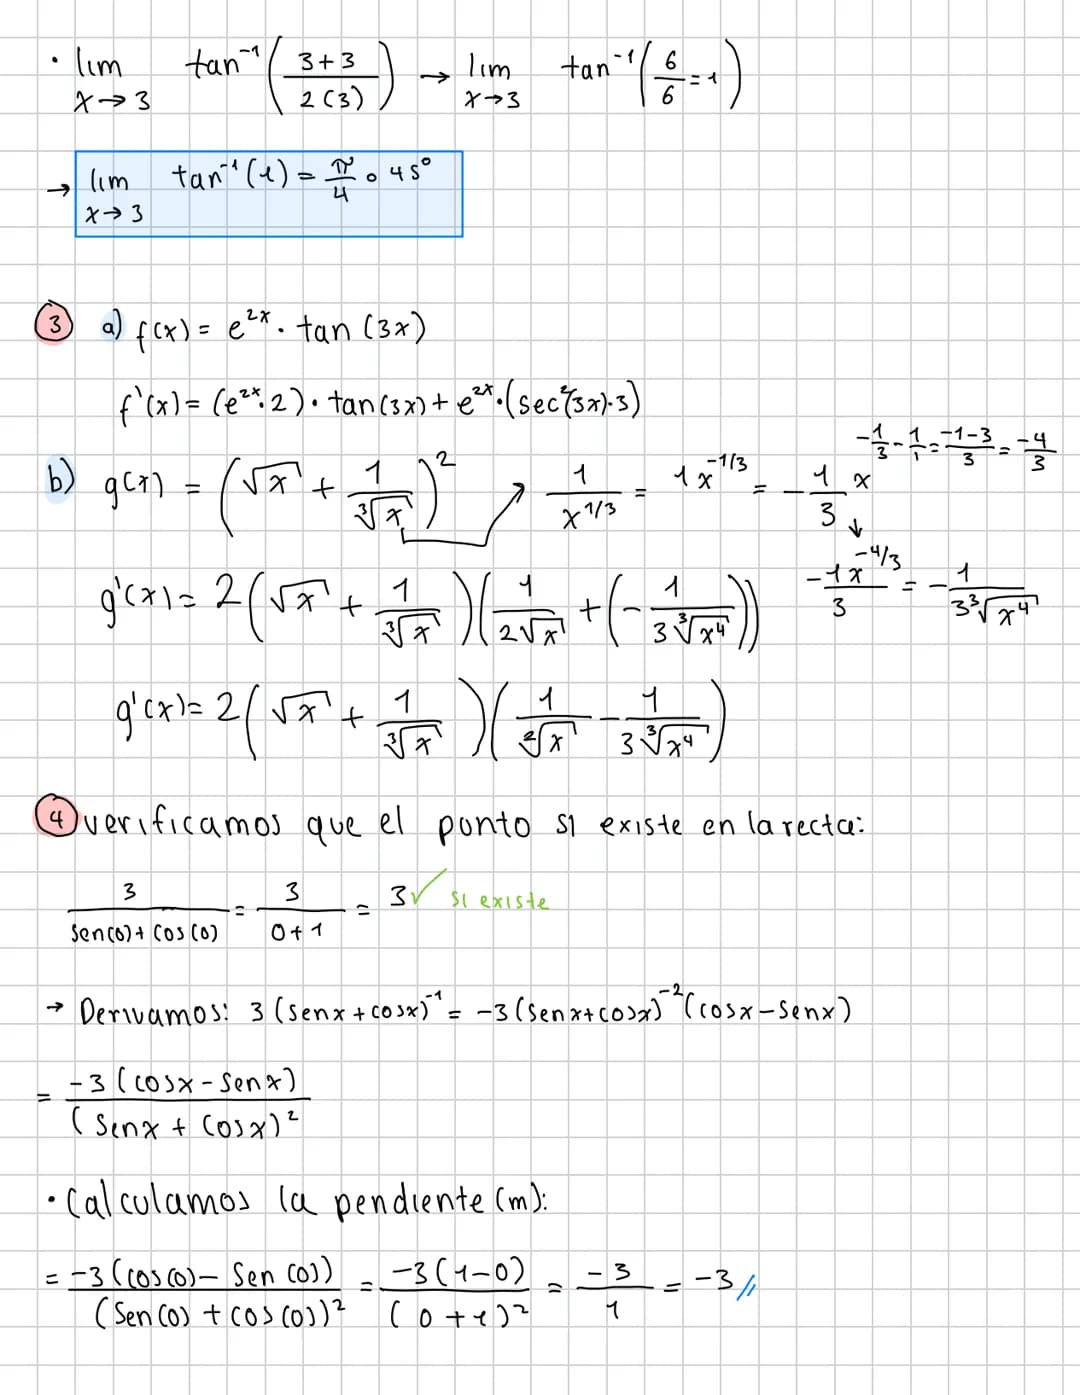 • lim tan⁻¹(3+3 / 2(3)) → lim tan⁻¹(6/6 = 1)
x→3 x→3
→ lim tan⁻¹(1) = π/4 o 45°
x→3
③ a) f(x) = e²ˣ · tan (3x)
f'(x) = (e²ˣ·2) · tan(3x) + e²ˣ·(sec²(3x)·3)
-1/3 - 1/1 = -1-3/3 = -4/3
b) g(x) = (√x + 1/∛x)² → 1/x^1/3 = 1x^-1/3 = -1/3 x
↓
g'(x) = 2(√x + 1/∛x)(1/2√x + (-1/3∛x⁴)) -1x^-4/3 / 3 = -1/3∛x⁴
g'(x) = 2(√x + 1/∛x)(1/2√x - 1/3∛x⁴)
④ verificamos que el punto si existe en la recta:
3/sen(0) + cos(0) = 3/0+1 = 3 ✓ si existe
→ Derivamos: 3(senx + cosx)⁻¹ = -3(senx+cosx)⁻²(cosx-senx)
= -3(cosx - senx)/(senx + cosx)²
• Calculamos la pendiente (m):
= -3(cos(0) - sen(0))/(sen(0) + cos(0))² = -3(1-0)/(0+1)² = -3/1 = -3 //